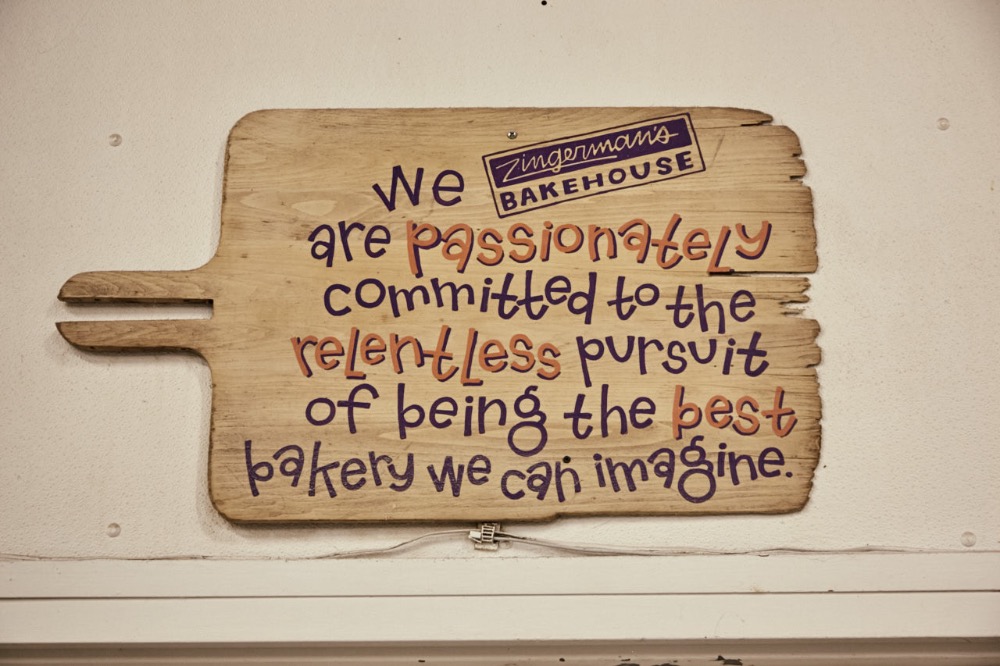 Zingerman's
BAKEHOUSE
We
are passionately
committed to the
relentless pursuit
of being the best
bakery we can imagine.